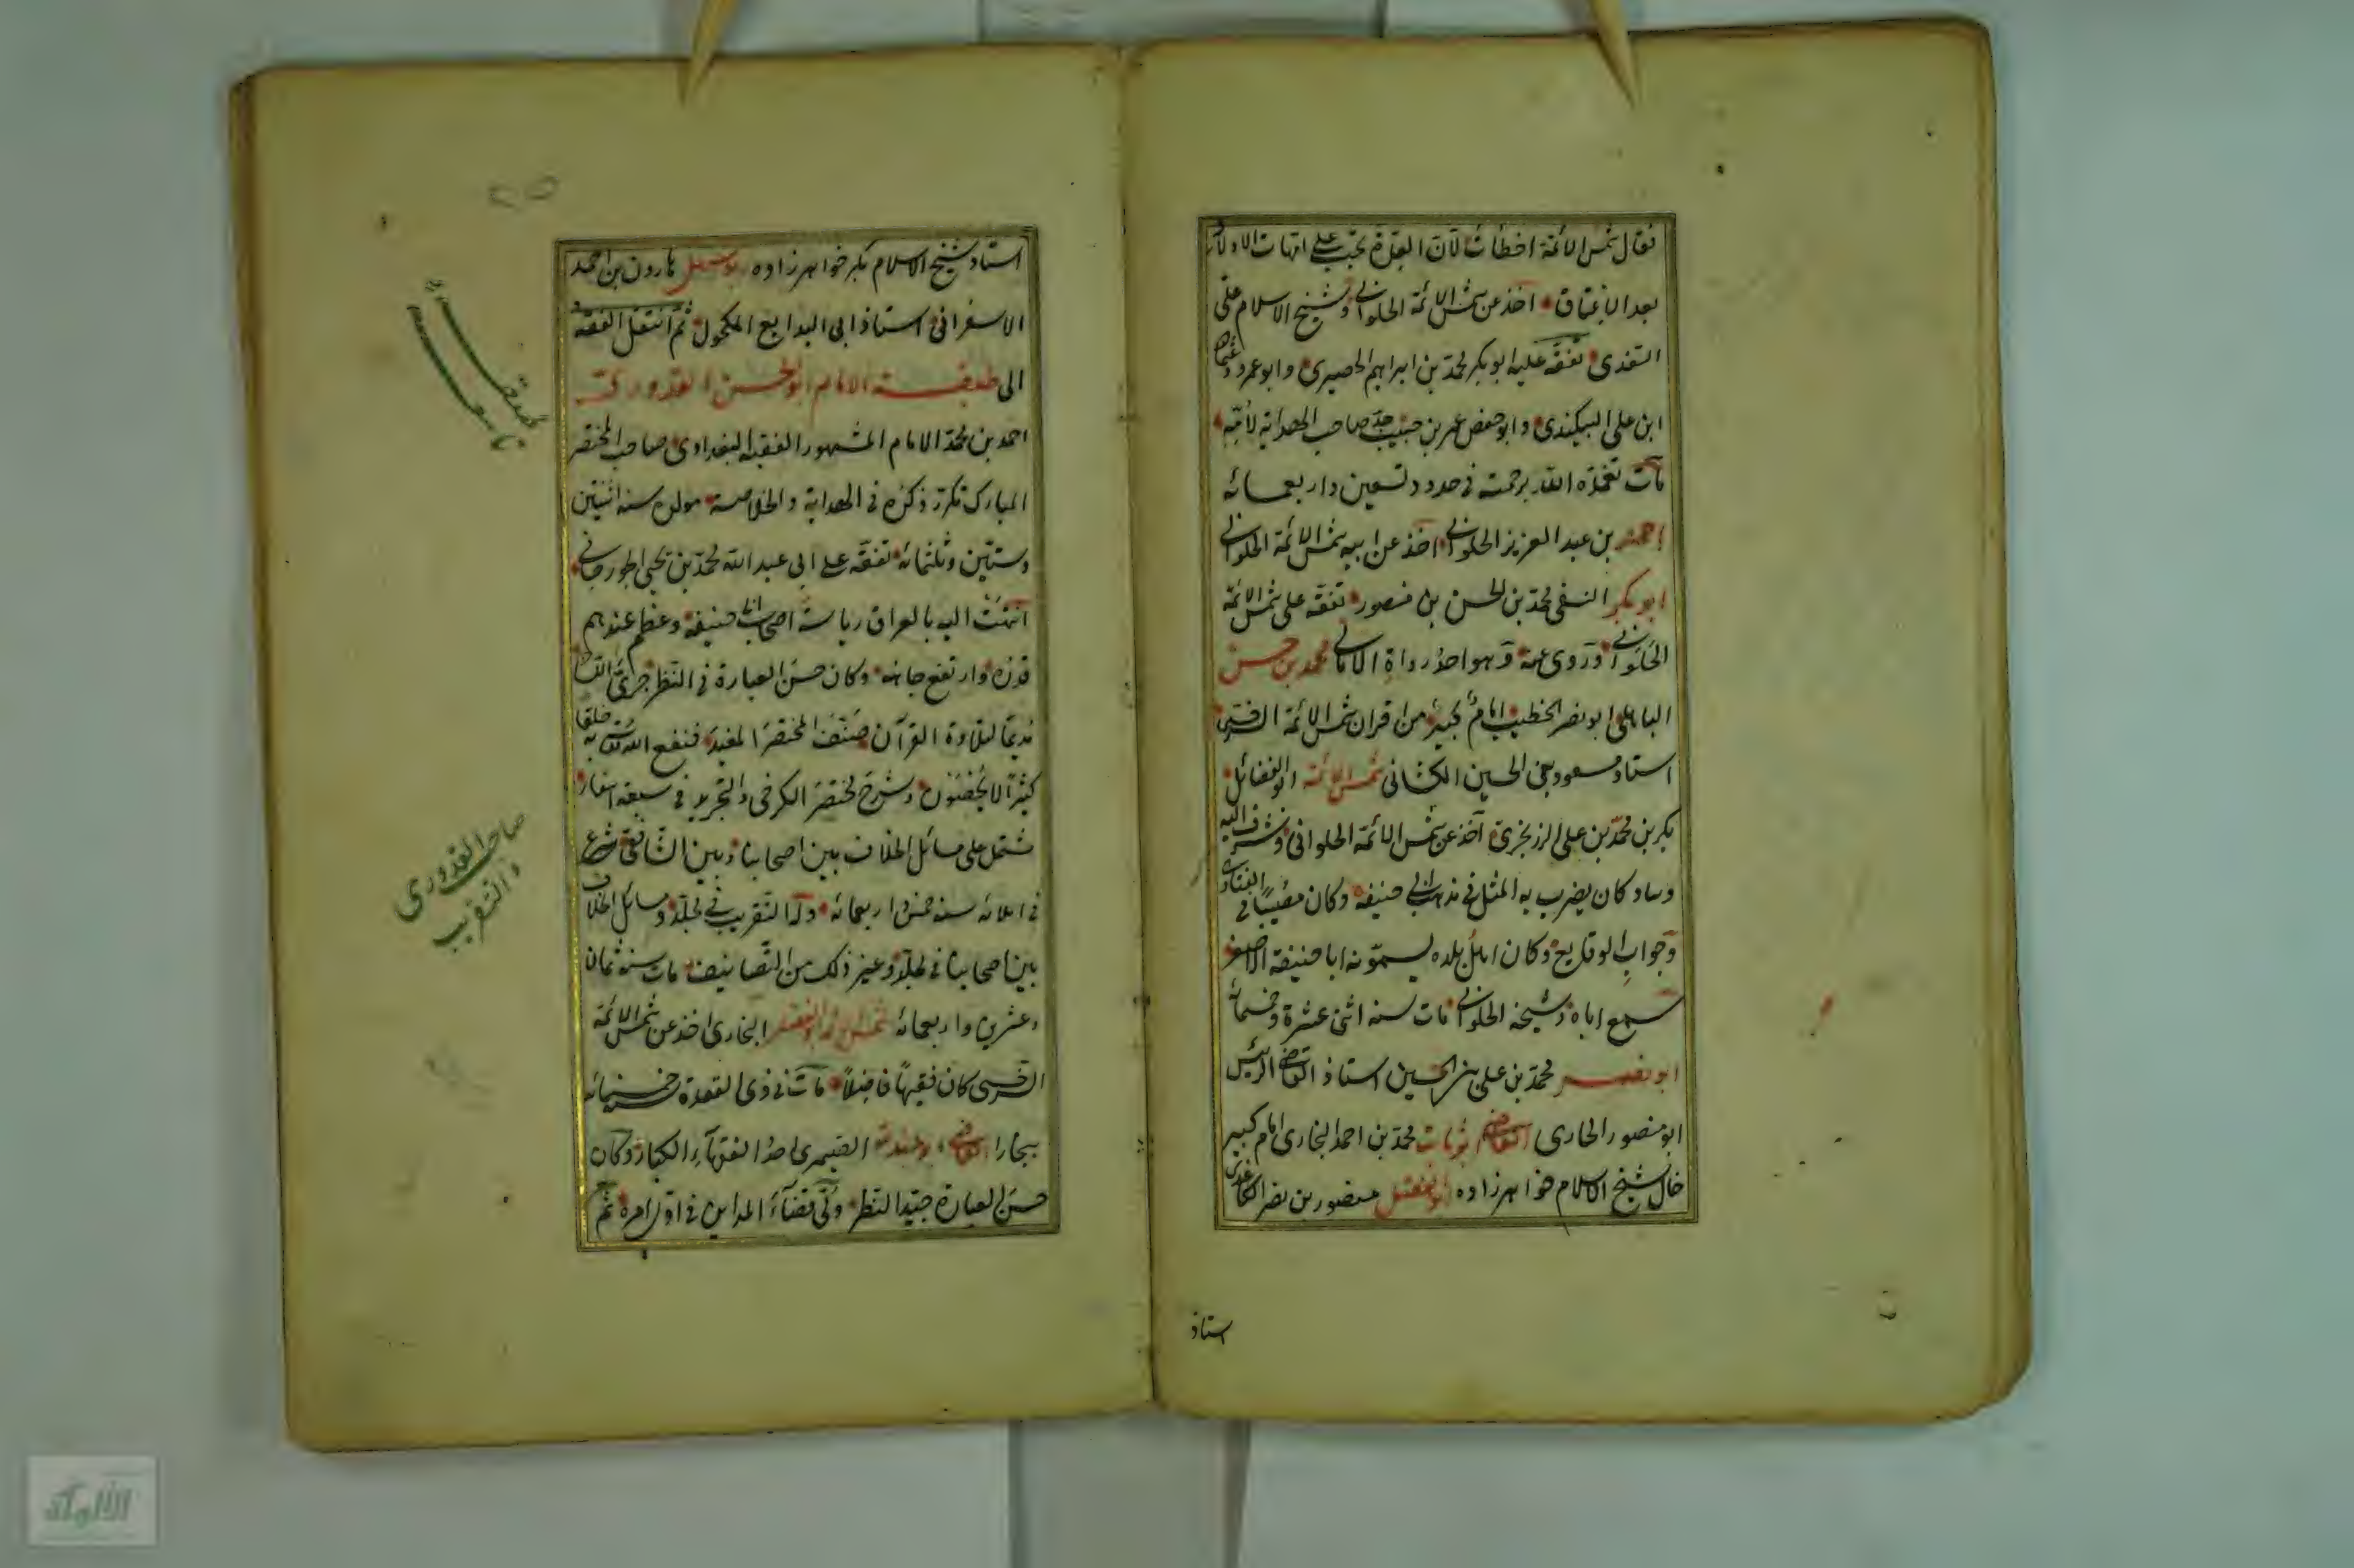 فقال شمس الائمة اخطأت لان العدة تجب على امهات الاولاد
بعد الاعتاق اخذ عن شمس الائمة الحلوانى وشيخ الاسلام على
السغدى تفقه عليه ابو بكر محمد بن ابراهيم الحصيرى وابو عمرو عثمان
ابن على البيكندى وابو حفص عمر بن حبيب جد صاحب الهداية لأمه
مات تغمده الله برحمته فى حدود تسعين واربعمائه
احمد بن عبد العزيز الحلوانى اخذ عن ابيه شمس الائمة الحلوانى
ابو بكر النسفى محمد بن الحسن بن منصور تفقه على شمس الائمة
الحلوانى وروى عنه وهو احد رواة الامالى محمد بن حسن
الباهلى ابو نصر الخطيب امام كبير من اقران شمس الائمة السرخسى
استاد مسعود بن الحسين الكشانى شمس الائمة ابو الفضائل
بكر بن محمد بن على الزرنجرى اخذ عن شمس الائمة الحلوانى وشرف اليه
وساد كان يضرب به المثل فى مذهب ابى حنيفة وكان مصيبا فى الفتاوى
وجواب الوقايع وكان اهل بلده يسمونه ابا حنيفة الاصغر
سمع اباه وشيخه الحلوانى مات سنه اثنى عشرة وخمسمائه
ابو نصر محمد بن على بن الحسين استاذ القاضى الرئيس
ابو منصور الحارى القاضى ابو ثابت محمد بن احمد البخارى امام كبير
خال شيخ الاسلام خواهر زاده ابو الفضل منصور بن نصر الكاغدى
استاذ
استاد شيخ الاسلام بكر خواهر زاده ابو سهل هارون بن احمد
الاسفراينى استاذ ابى البدايع المكحول ثم انتقل الفقه
الى طبقة الامام ابو الحسن القدورى
احمد بن محمد الامام المشهور الفقيه البغدادى صاحب المختصر
المبارك تكرر ذكره فى الهداية والخلاصة مولده سنه اثنتين
وستين وثلثمائه تفقه على ابى عبد الله محمد بن يحيى الجورجانى
انتهت اليه بالعراق رياسة اصحاب ابى حنيفة وعظم عندهم
قدره وارتفع جاهه وكان حسن العبارة فى النظر جرئ اللسان
مديما لتلاوة القرآن صنف المختصر المفيد فنفع الله تعالى به خلقا
كثيرا لا يحصون وشرح مختصر الكرخى والتجريد فى سبعة اسفار
مشتمل على مسائل الخلاف بين اصحابنا وبين الشافعى شرع
فى املائه سنه خمس واربعمائه وله التقريب فى مجلد ومسائل الخلاف
بين اصحابنا فى مجلد وغير ذلك من التصانيف مات سنه ثمان
وعشرين واربعمائه شمس الائمة ابو الفضل البخارى اخذ عن شمس الائمة
السرخسى كان فقيها فاضلا مات فى ذى القعدة خمسمائه
ببخارا القاضى ابو عبد الله الصيمرى احد الفقهاء الكبار وكان
حسن العبارة جيد النظر ولى قضاء المداين فى اول امره ثم
طبقة
تاسعه
صاحب القدورى
والتقريب
الألوكة